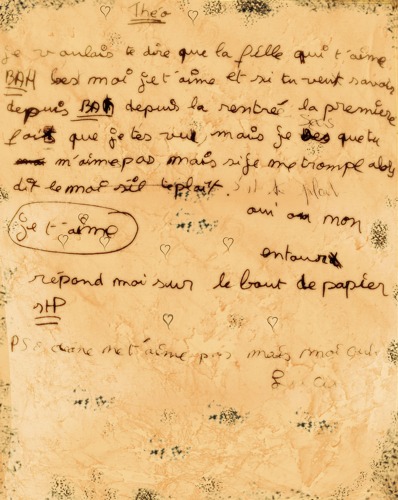 Théo
je voulais te dire que la fille qui t'aime
BAH bes moi je t'aime et si tu veut savoir
depuis BAH depuis la rentré la premiere
fait que je tes vu, mais je sais que tu
m'aime pas mais si je me trompe alors
dit le moi s'il te plait
oui ou non
je t'aime
entoure
répond moi sur le bout de papier
STP
PS: ne t'aime pas mais moi oui